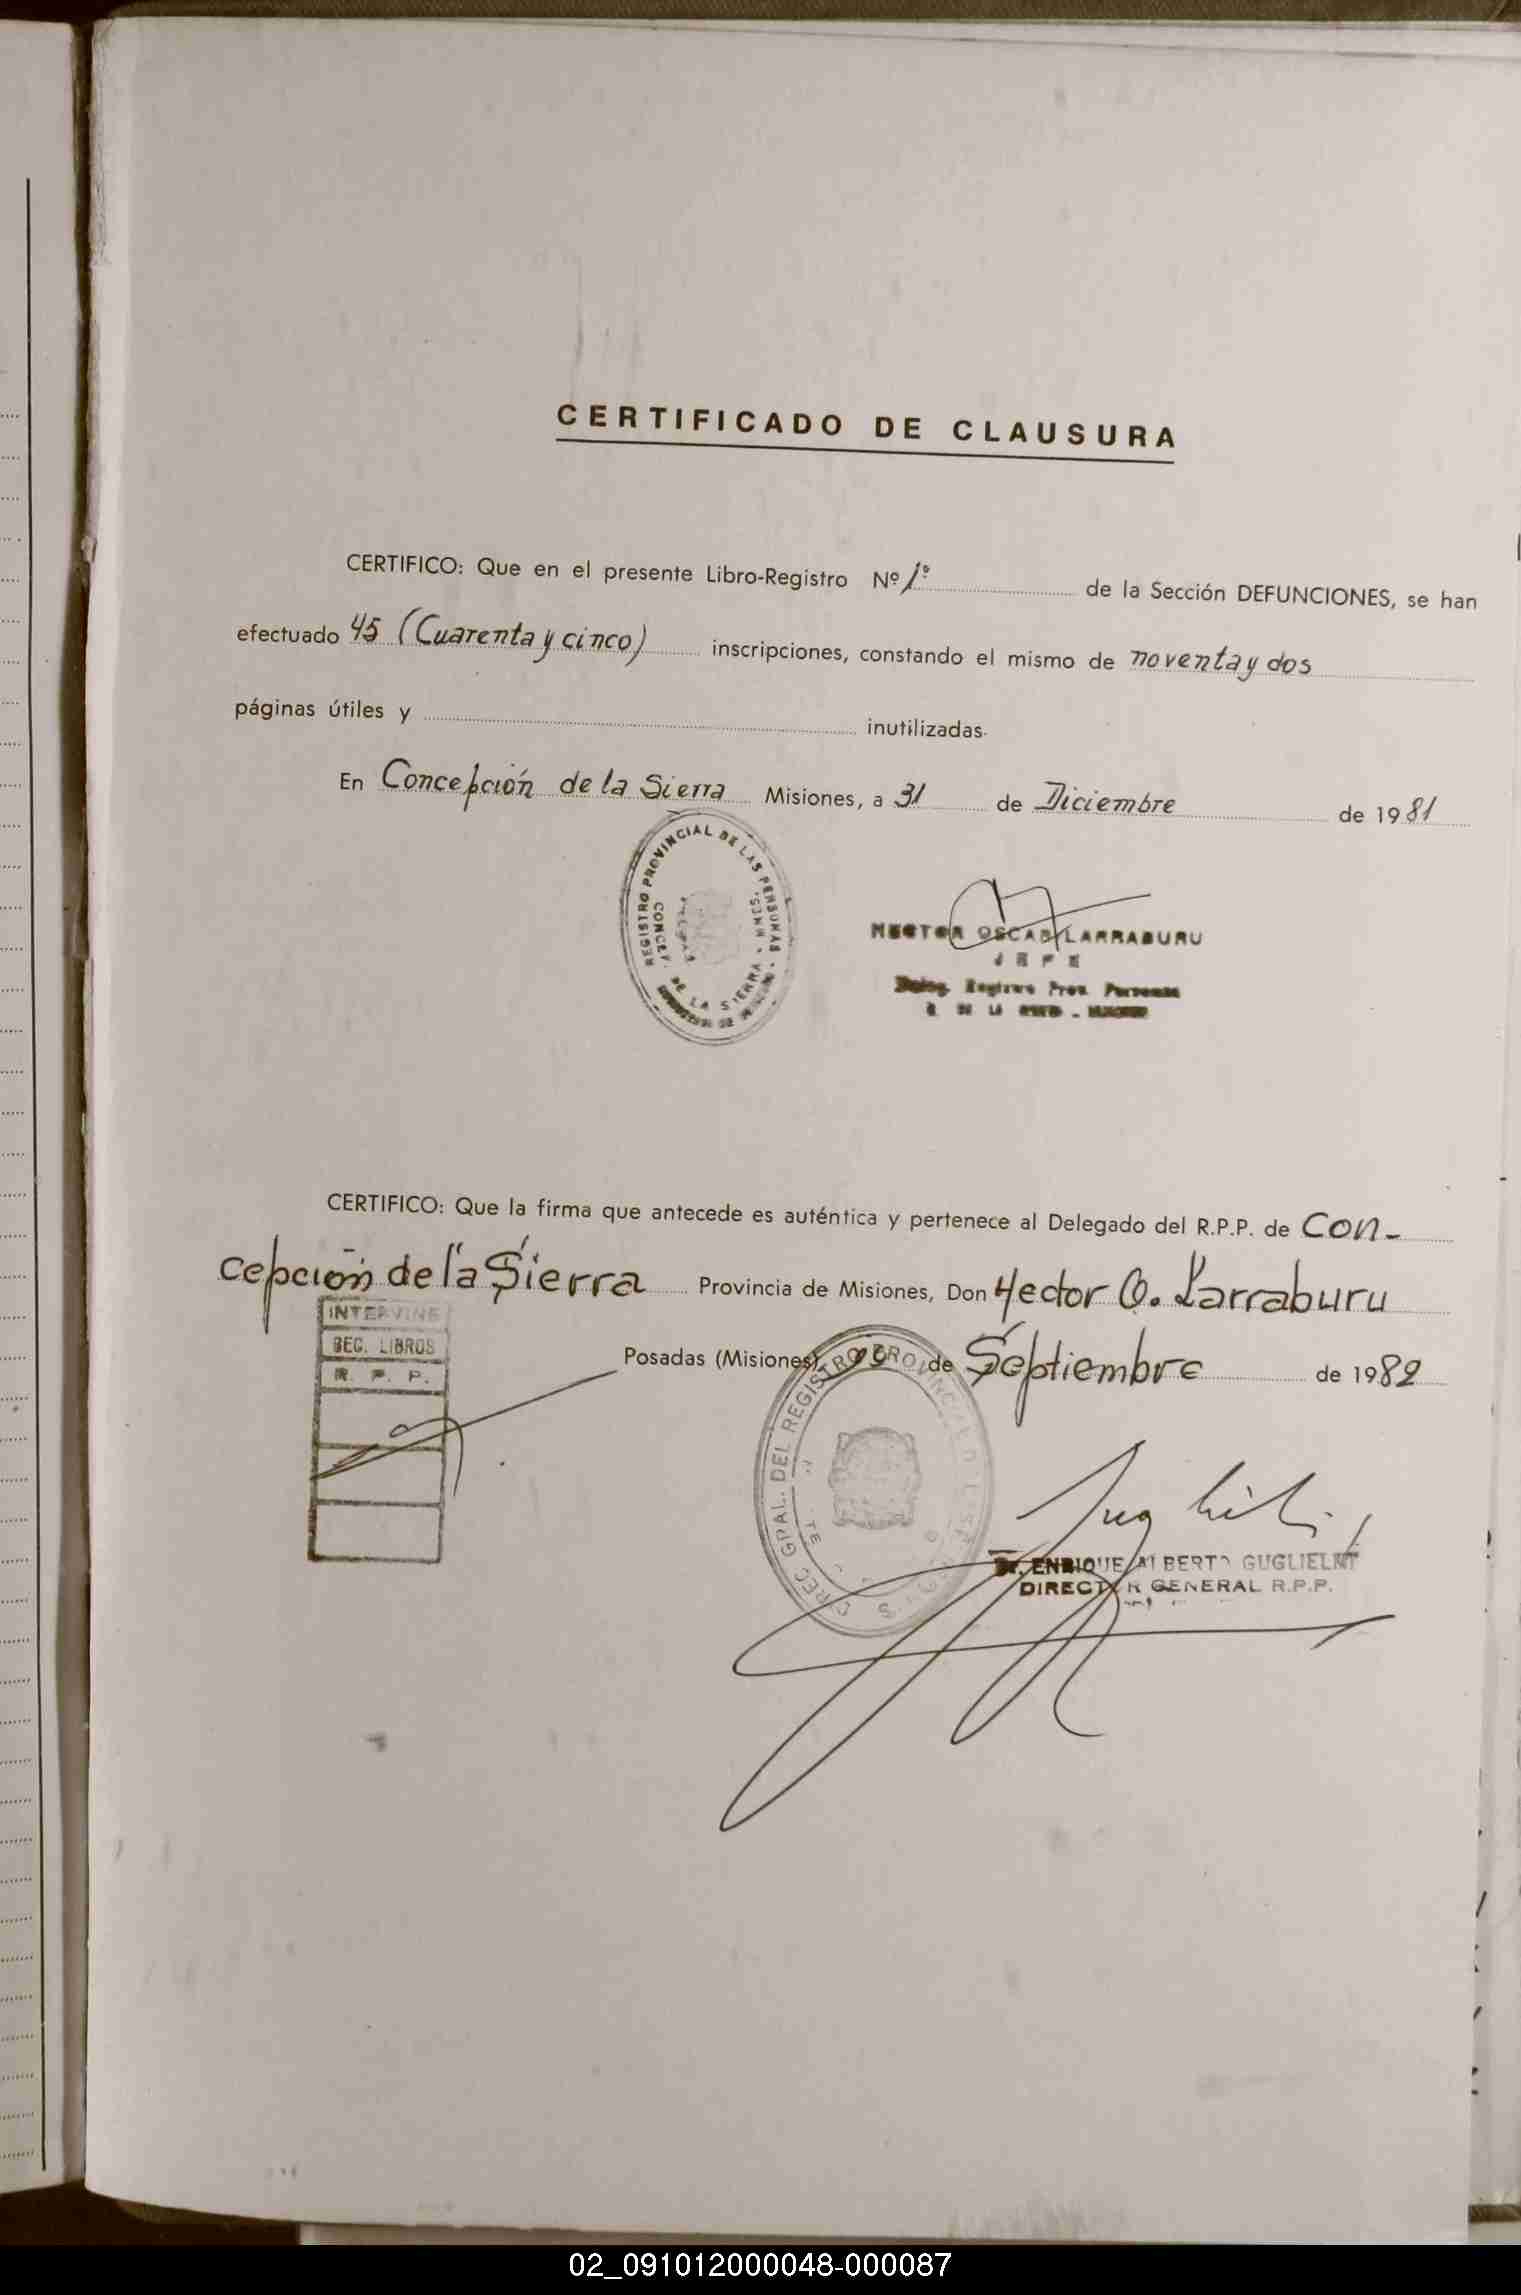 CERTIFICADO DE CLAUSURA
CERTIFICO: Que en el presente Libro-Registro Nº 1º de la Sección DEFUNCIONES, se han
efectuado 45 (Cuarenta y cinco) inscripciones, constando el mismo de noventa y dos
páginas útiles y inutilizadas.
En Concepción de la Sierra Misiones, a 31 de Diciembre de 1981
REGISTRO PROVINCIAL DE LAS PERSONAS
CONCEP. DE LA SIERRA - MNES.
HECTOR OSCAR LARRABURU
JEFE
CERTIFICO: Que la firma que antecede es auténtica y pertenece al Delegado del R.P.P. de Con-
cepción de la Sierra Provincia de Misiones, Don Hector O. Larraburu
INTERVINE
SEC. LIBROS
R. P. P.
Posadas (Misiones), de Septiembre de 1982
DIREC. GRAL. DEL REGISTRO PROVINCIAL
Dr. ENRIQUE ALBERTO GUGLIELMI
DIRECTOR GENERAL R.P.P.
02_091012000048-000087